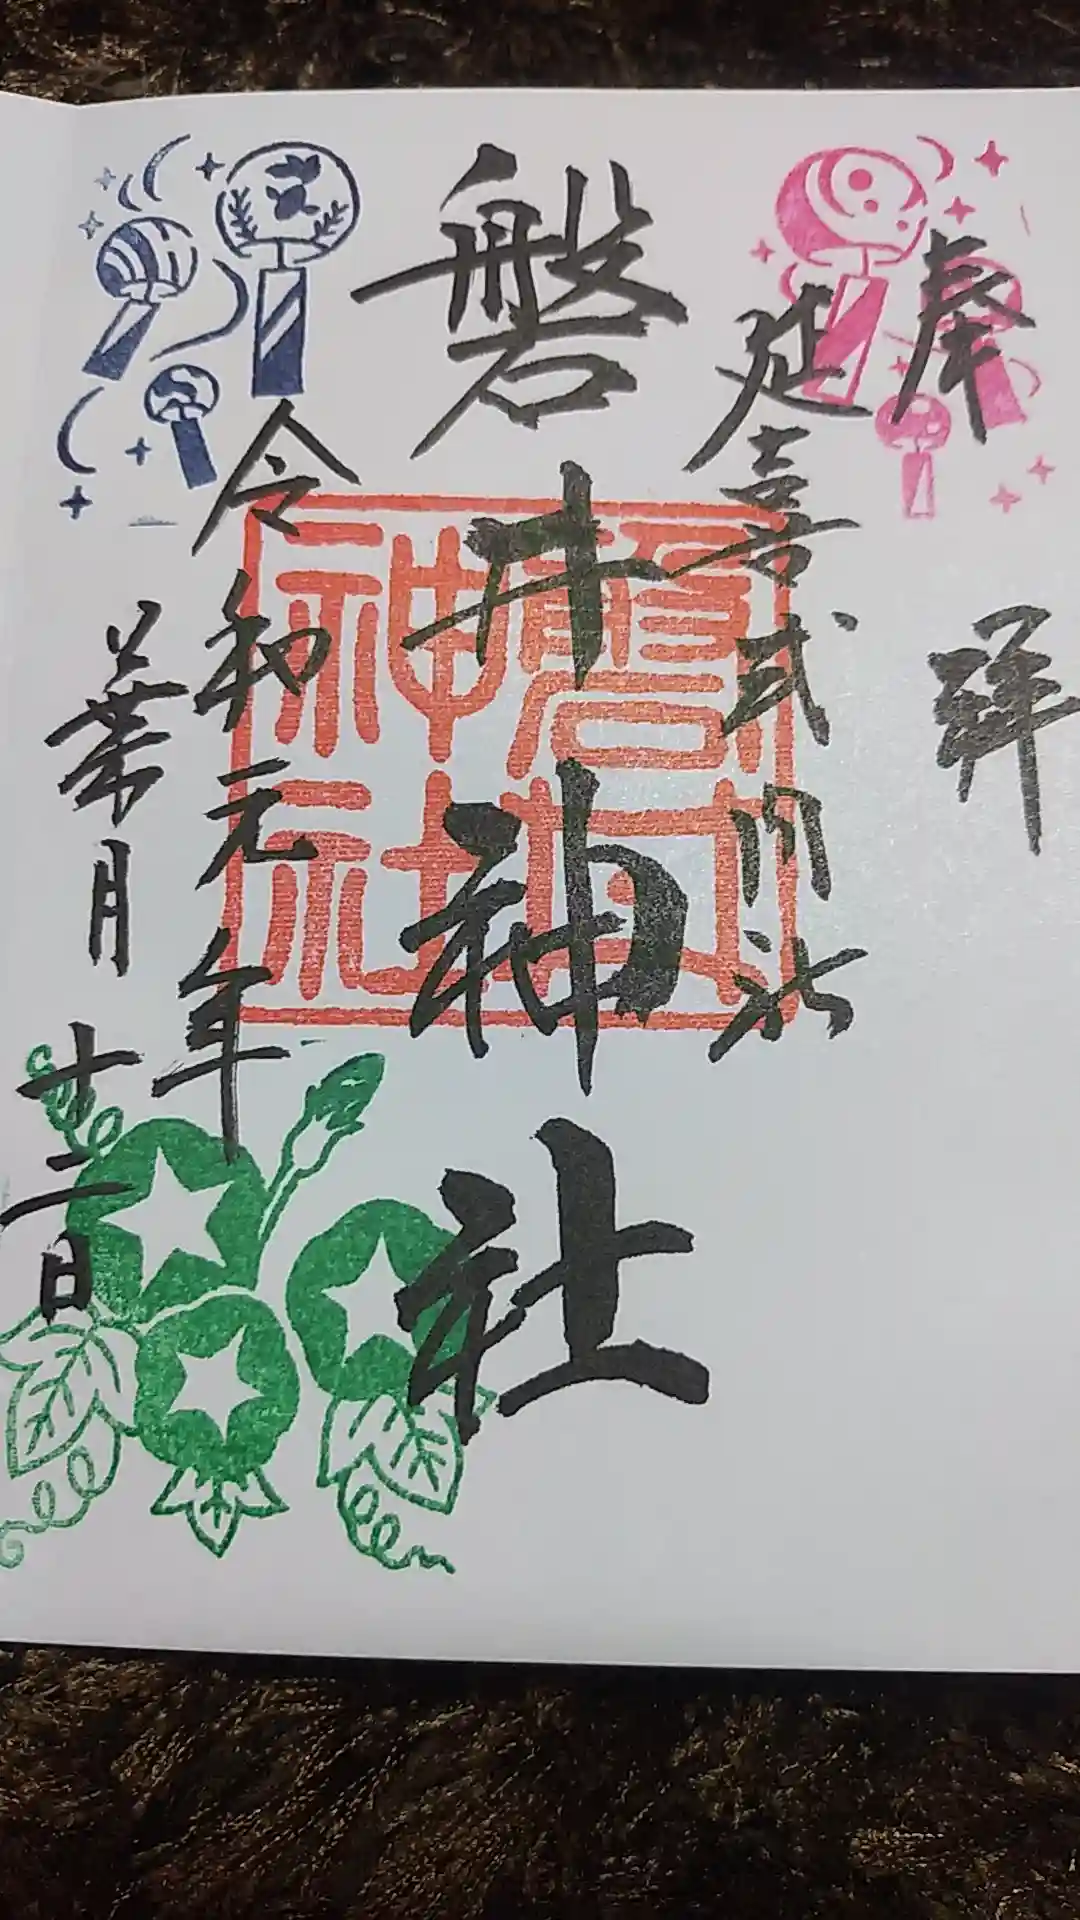 奉拝
延喜式内社
磐井神社
令和元年
葉月十二日
磐井神社